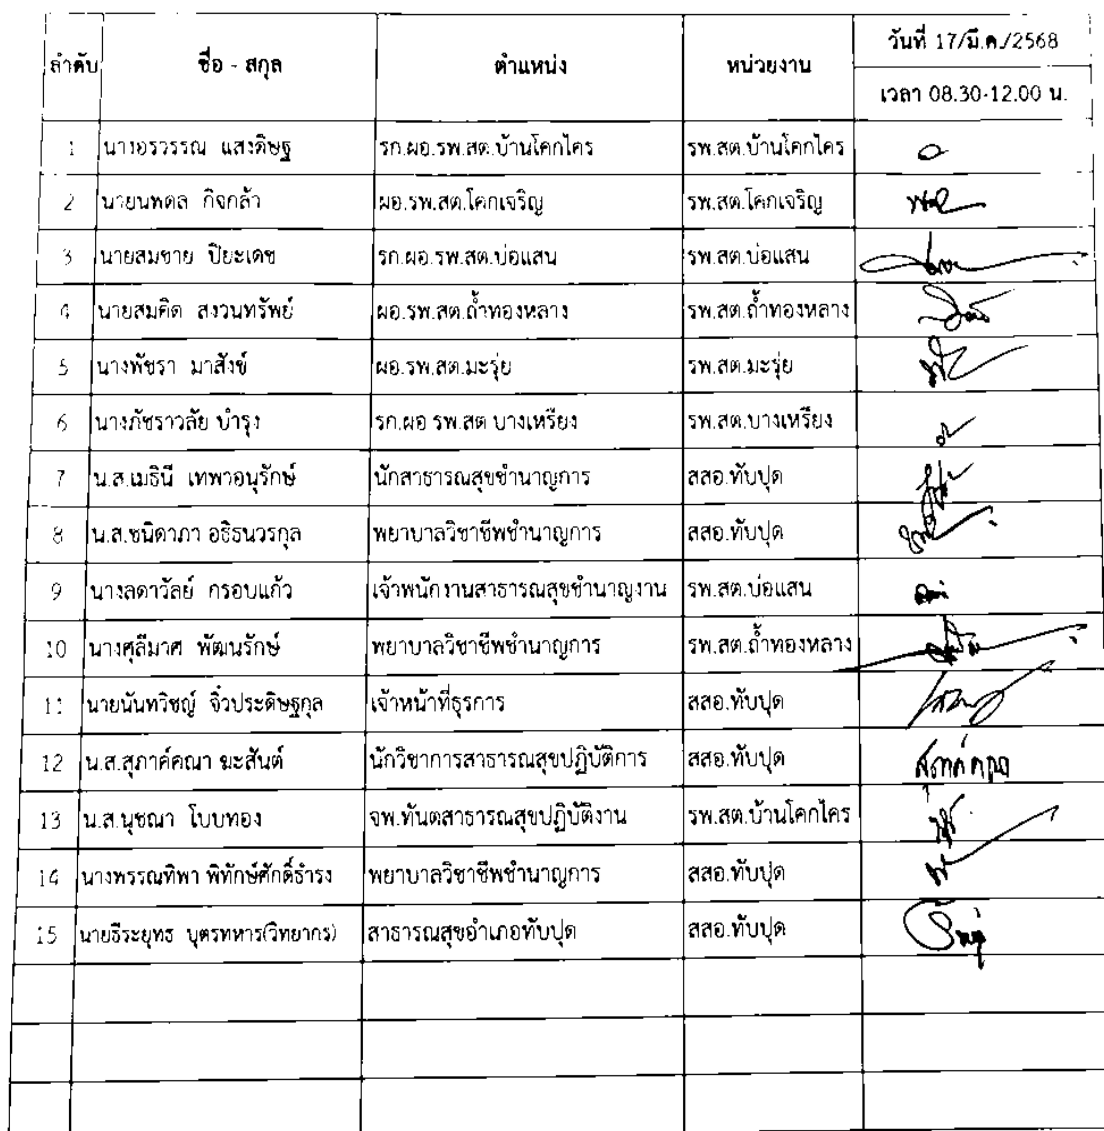 ลำดับ ชื่อ - สกุล ตำแหน่ง หน่วยงาน วันที่ 17/มี.ค./2568
เวลา 08.30-12.00 น.
1 นางอรวรรณ แสงดิษฐ รก.ผอ.รพ.สต.บ้านโคกไคร รพ.สต.บ้านโคกไคร
2 นายนพดล กิจกล้า ผอ.รพ.สต.โคกเจริญ รพ.สต.โคกเจริญ
3 นายสมชาย ปิยะเดช รก.ผอ.รพ.สต.บ่อแสน รพ.สต.บ่อแสน
4 นายสมคิด สงวนทรัพย์ ผอ.รพ.สต.ถ้ำทองหลาง รพ.สต.ถ้ำทองหลาง
5 นางพัชรา มาสังข์ ผอ.รพ.สต.มะรุ่ย รพ.สต.มะรุ่ย
6 นางภัชราวลัย บำรุง รก.ผอ รพ.สต บางเหรียง รพ.สต.บางเหรียง
7 น.ส.เมธินี เทพาอนุรักษ์ นักสาธารณสุขชำนาญการ สสอ.ทับปุด
8 น.ส.ชนิดาภา อธิธนวรกุล พยาบาลวิชาชีพชำนาญการ สสอ.ทับปุด
9 นางลดาวัลย์ กรอบแก้ว เจ้าพนักงานสาธารณสุขชำนาญงาน รพ.สต.บ่อแสน
10 นางศุลีมาศ พัฒนรักษ์ พยาบาลวิชาชีพชำนาญการ รพ.สต.ถ้ำทองหลาง
11 นายนันทวิชญ์ จิ๋วประดิษฐกุล เจ้าหน้าที่ธุรการ สสอ.ทับปุด
12 น.ส.สุภาค์คณา ฆะสันต์ นักวิชาการสาธารณสุขปฏิบัติการ สสอ.ทับปุด
13 น.ส.นุชณา โบบทอง จพ.ทันตสาธารณสุขปฏิบัติงาน รพ.สต.บ้านโคกไคร
14 นางพรรณทิพา พิทักษ์ศักดิ์ธำรง พยาบาลวิชาชีพชำนาญการ สสอ.ทับปุด
15 นายธีระยุทธ บุตรทหาร(วิทยากร) สาธารณสุขอำเภอทับปุด สสอ.ทับปุด